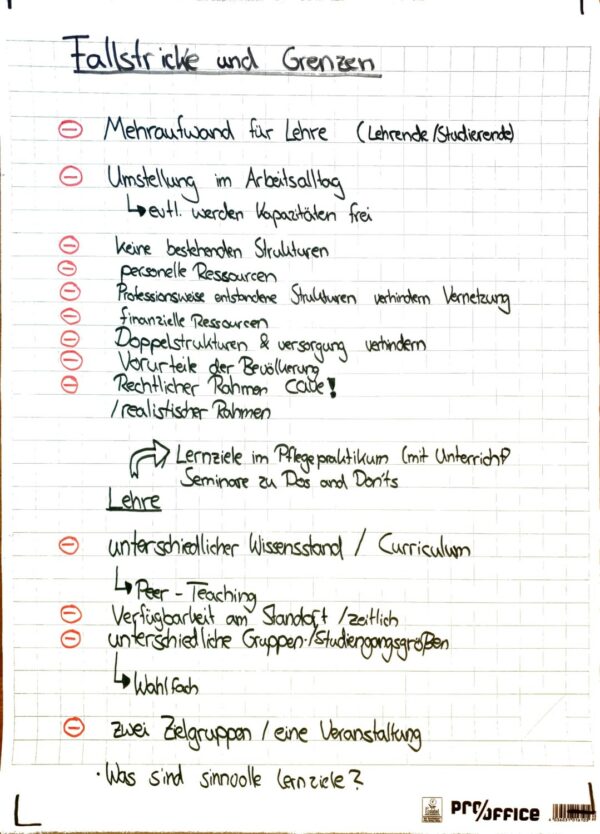 Fallstricke und Grenzen
⊖ Mehraufwand für Lehre (Lehrende/Studierende)
⊖ Umstellung im Arbeitsalltag
↳ evtl. werden Kapazitäten frei
⊖ keine bestehenden Strukturen
⊖ personelle Ressourcen
⊖ Professionsweise entstandene Strukturen verhindern Vernetzung
⊖ finanzielle Ressourcen
⊖ Doppelstrukturen & versorgung verhindern
⊖ Vorurteile der Bevölkerung
⊖ Rechtlicher Rahmen cave!
/realistischer Rahmen
Lernziele im Pflegepraktikum (mit Unterricht?
Seminare zu Dos and Don'ts
Lehre
⊖ unterschiedlicher Wissensstand / Curriculum
↳ Peer - Teaching
⊖ Verfügbarkeit am Standort /zeitlich
⊖ unterschiedliche Gruppen-/Studiengangsgrößen
↳ Wahlfach
⊖ zwei Zielgruppen / eine Veranstaltung
· Was sind sinnvolle Lernziele?
PRO/OFFICE